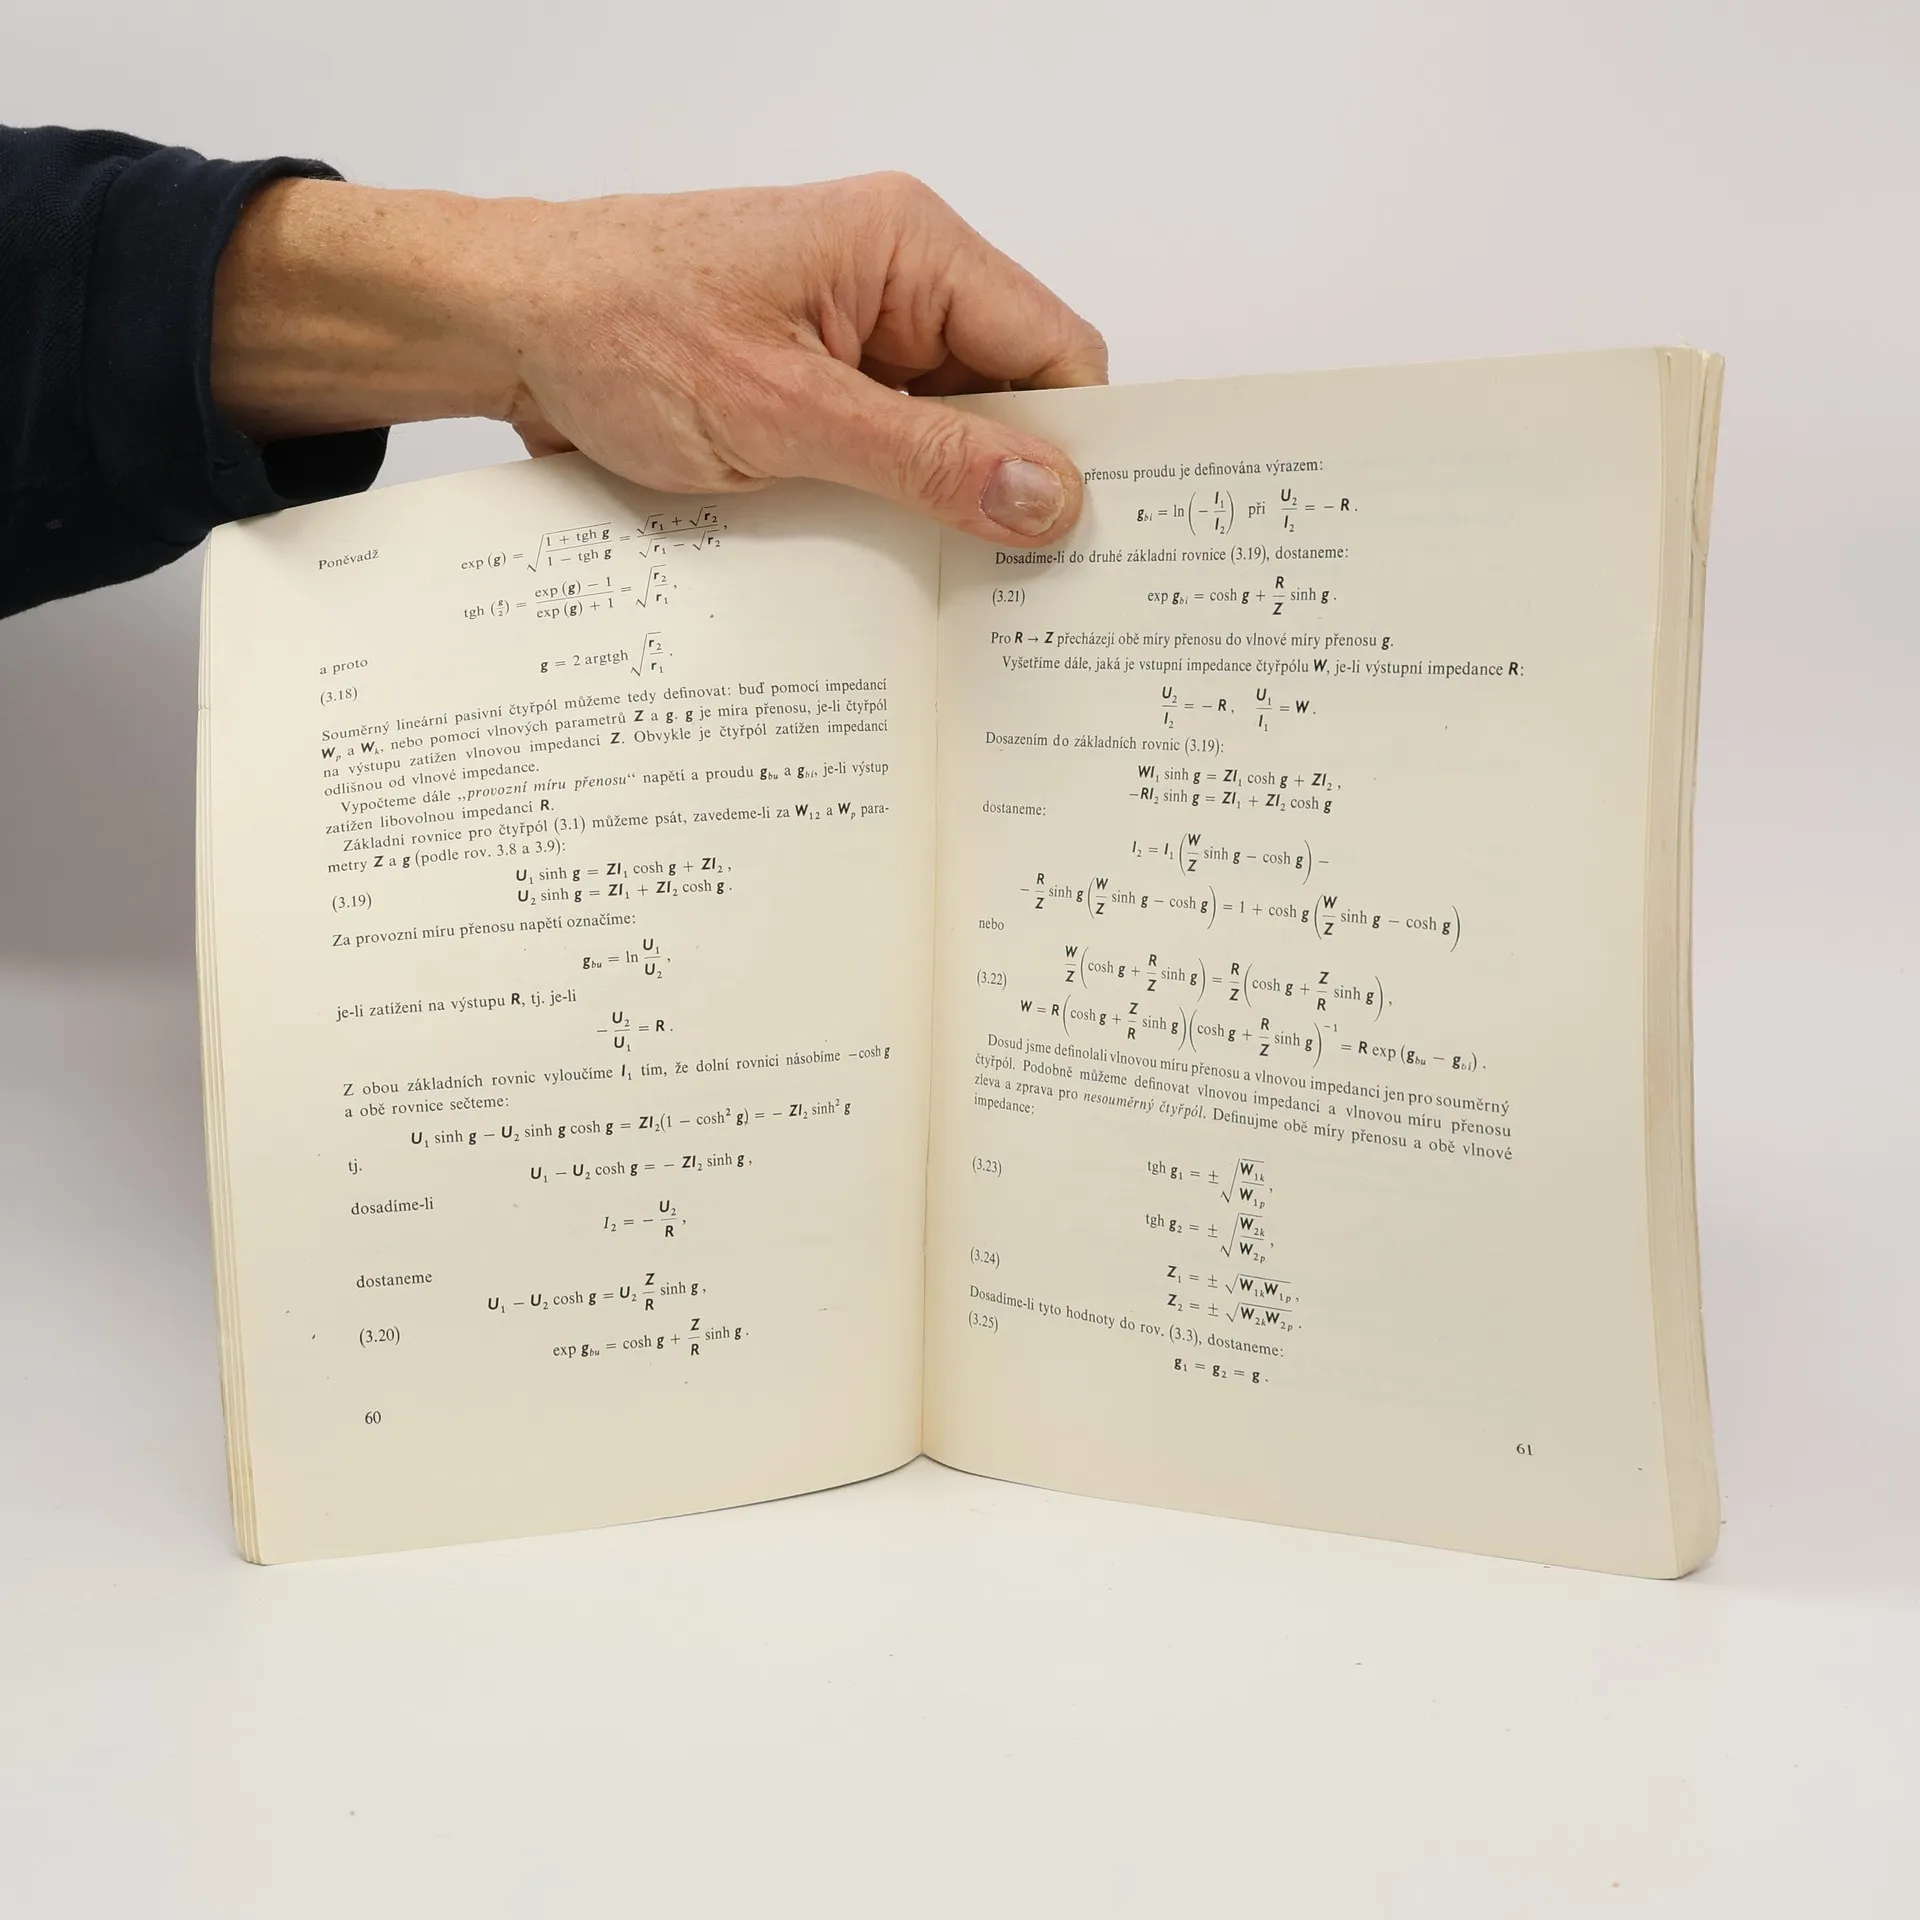 Poněvadž
exp (g) = √((1 + tgh g)/(1 − tgh g)) = (√r₁ + √r₂)/(√r₁ − √r₂),
tgh (g/2) = (exp (g) − 1)/(exp (g) + 1) = √(r₂/r₁),
a proto
(3.18) g = 2 argtgh √(r₂/r₁).
Souměrný lineární pasivní čtyřpól můžeme tedy definovat: buď pomocí impedancí
Wₚ a Wₖ, nebo pomocí vlnových parametrů Z a g. g je míra přenosu, je-li čtyřpól
na výstupu zatížen vlnovou impedancí Z. Obvykle je čtyřpól zatížen impedancí
odlišnou od vlnové impedance.
Vypočteme dále „provozní míru přenosu“ napětí a proudu g_bu a g_bi, je-li výstup
zatížen libovolnou impedancí R.
Základní rovnice pro čtyřpól (3.1) můžeme psát, zavedeme-li za W₁₂ a Wₚ para-
metry Z a g (podle rov. 3.8 a 3.9):
U₁ sinh g = ZI₁ cosh g + ZI₂,
(3.19) U₂ sinh g = ZI₁ + ZI₂ cosh g.
Za provozní míru přenosu napětí označíme:
g_bu = ln U₁/U₂,
je-li zatížení na výstupu R, tj. je-li
− U₂/U₁ = R.
Z obou základních rovnic vyloučíme I₁ tím, že dolní rovnici násobíme −cosh g
a obě rovnice sečteme:
U₁ sinh g − U₂ sinh g cosh g = ZI₂(1 − cosh² g) = − ZI₂ sinh² g
tj.
U₁ − U₂ cosh g = − ZI₂ sinh g,
dosadíme-li
I₂ = − U₂/R,
dostaneme
U₁ − U₂ cosh g = U₂ Z/R sinh g,
(3.20) exp g_bu = cosh g + Z/R sinh g.
60
přenosu proudu je definována výrazem:
g_bi = ln (− I₁/I₂) při U₂/I₂ = − R.
Dosadíme-li do druhé základní rovnice (3.19), dostaneme:
(3.21) exp g_bi = cosh g + R/Z sinh g.
Pro R → Z přecházejí obě míry přenosu do vlnové míry přenosu g.
Vyšetříme dále, jaká je vstupní impedance čtyřpólu W, je-li výstupní impedance R:
U₂/I₂ = − R, U₁/I₁ = W.
Dosazením do základních rovnic (3.19):
WI₁ sinh g = ZI₁ cosh g + ZI₂,
−RI₂ sinh g = ZI₁ + ZI₂ cosh g
dostaneme:
I₂ = I₁ (W/Z sinh g − cosh g) −
− R/Z sinh g (W/Z sinh g − cosh g) = 1 + cosh g (W/Z sinh g − cosh g)
nebo
(3.22) W/Z (cosh g + R/Z sinh g) = R/Z (cosh g + Z/R sinh g),
W = R (cosh g + Z/R sinh g)(cosh g + R/Z sinh g)⁻¹ = R exp (g_bu − g_bi).
Dosud jsme definolali vlnovou míru přenosu a vlnovou impedanci jen pro souměrný
čtyřpól. Podobně můžeme definovat vlnovou impedanci a vlnovou míru přenosu
zleva a zprava pro nesouměrný čtyřpól. Definujme obě míry přenosu a obě vlnové
impedance:
(3.23) tgh g₁ = ± √(W₁ₖ/W₁ₚ),
tgh g₂ = ± √(W₂ₖ/W₂ₚ),
(3.24) Z₁ = ± √(W₁ₖW₁ₚ),
Z₂ = ± √(W₂ₖW₂ₚ).
Dosadíme-li tyto hodnoty do rov. (3.3), dostaneme:
(3.25) g₁ = g₂ = g.
61